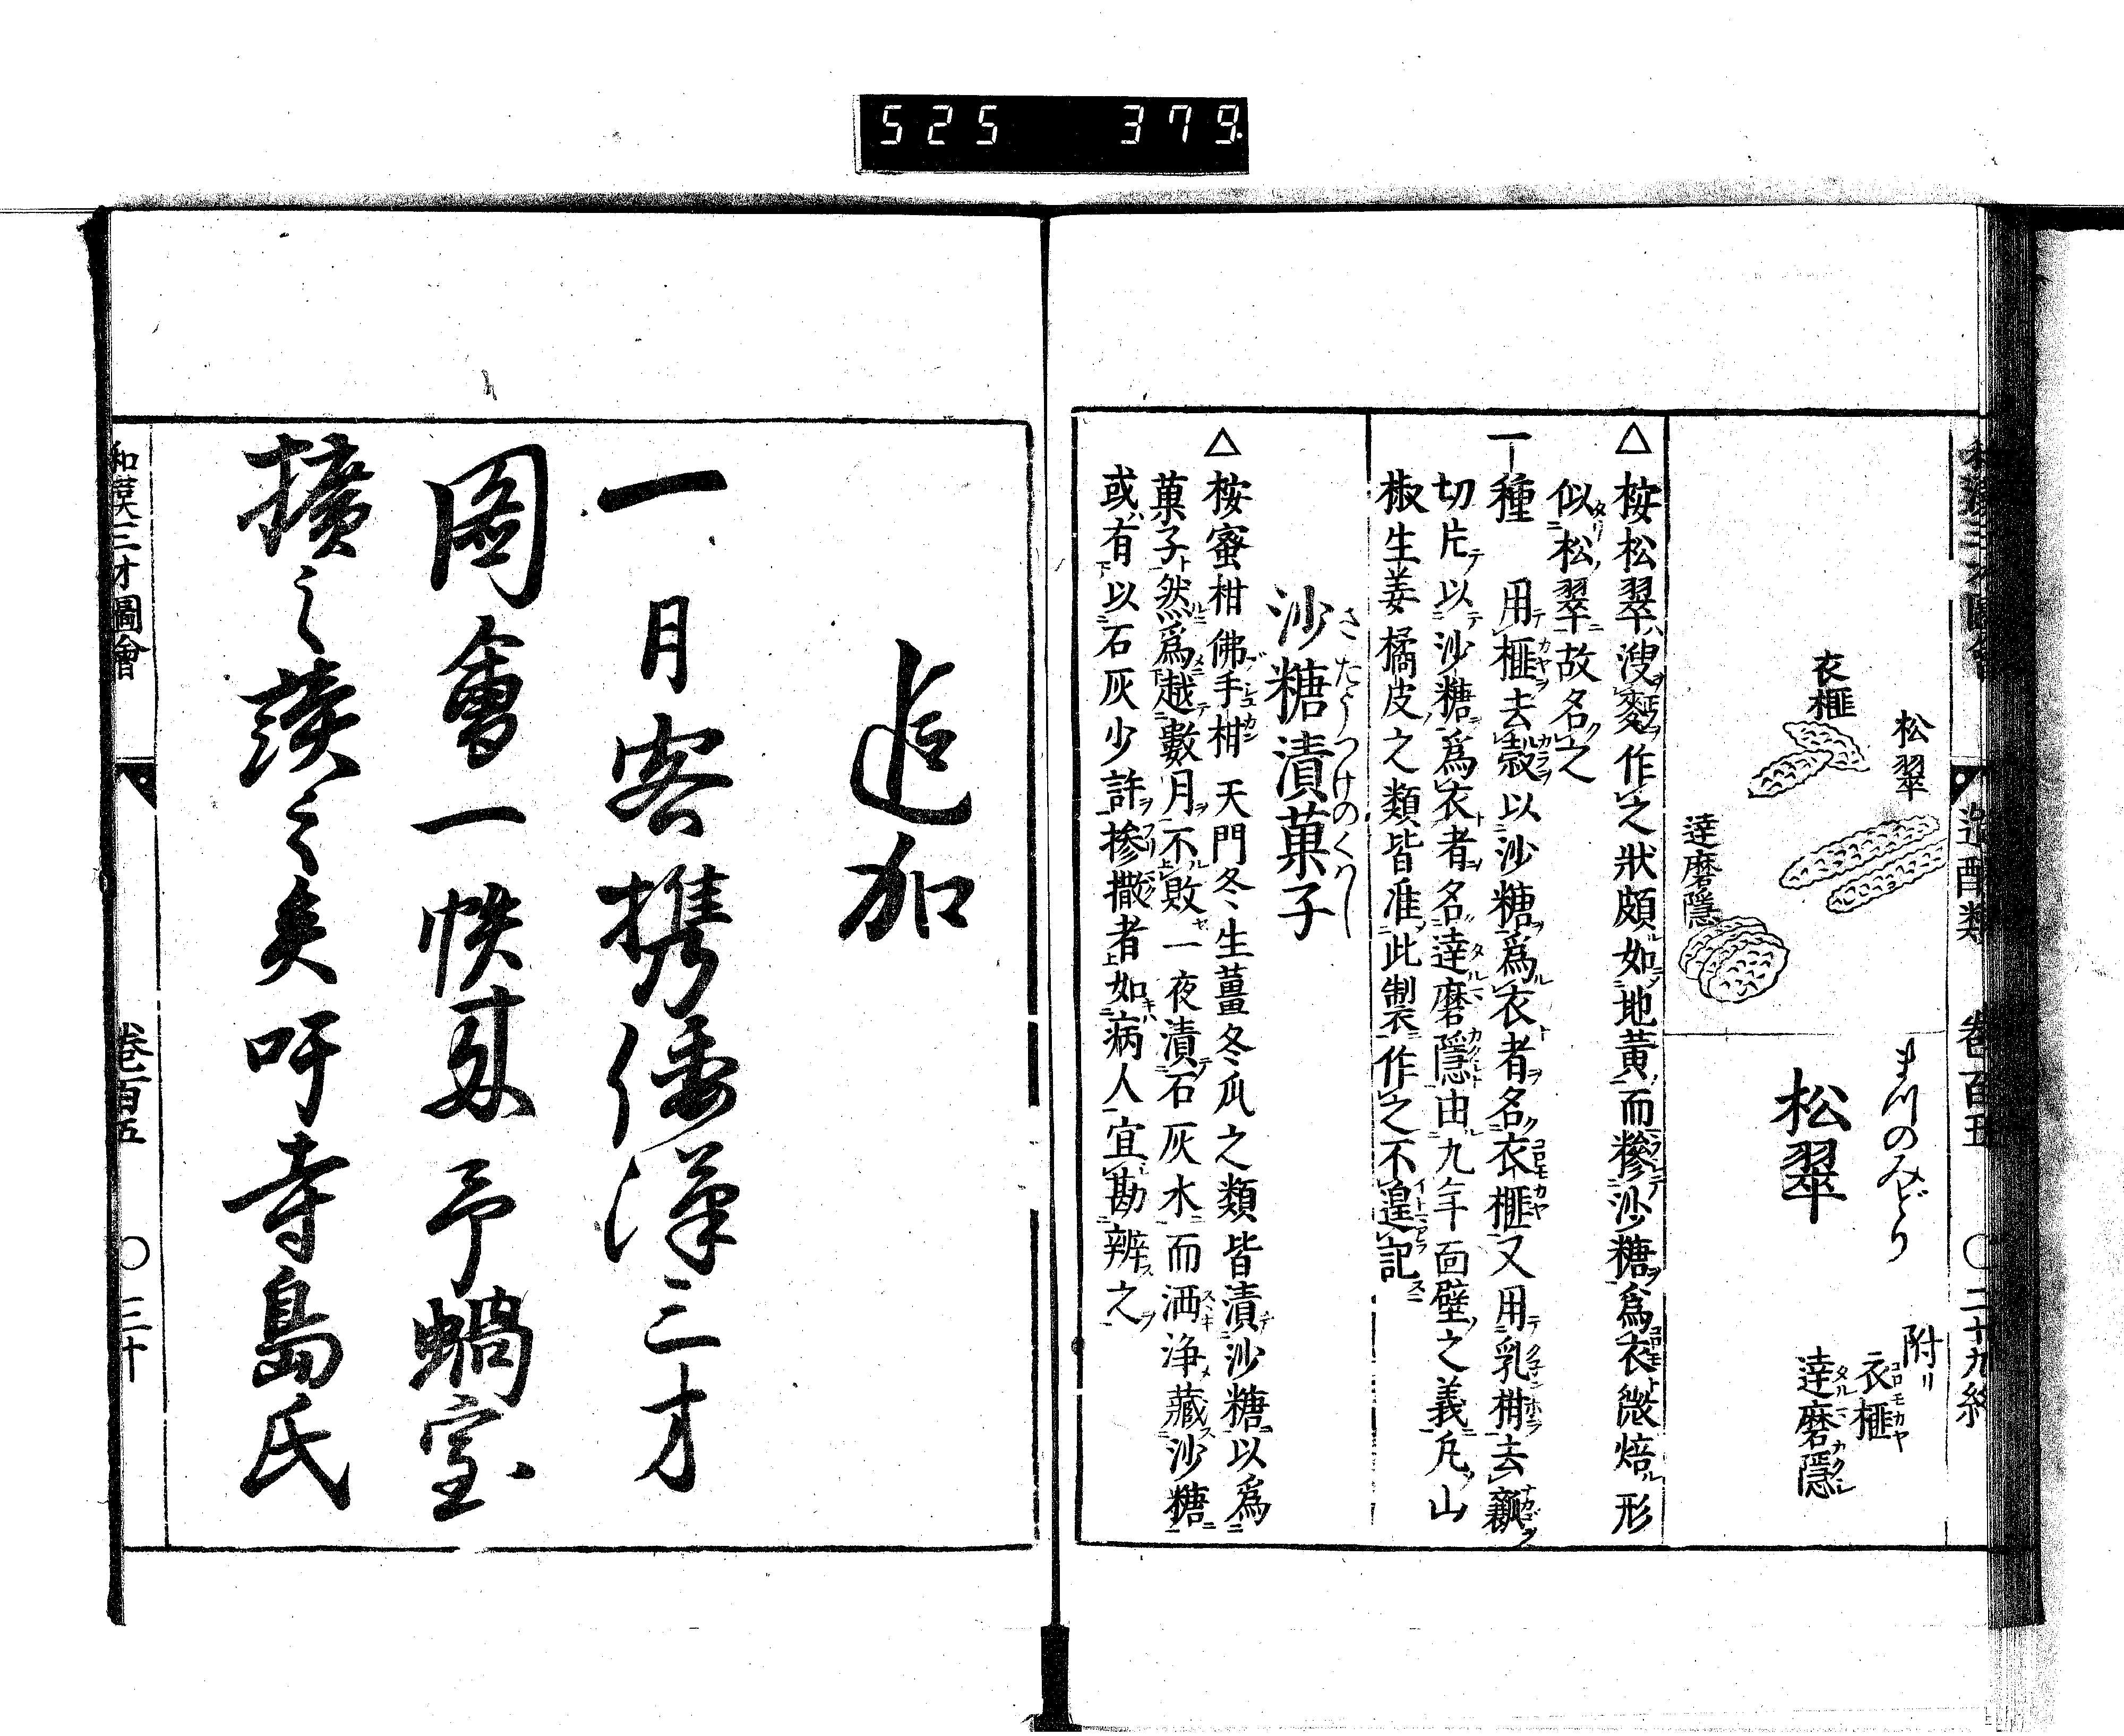 525 379
和漢三才圖會 造釀類 卷百五 〇二十九終
まつのみどり
松翠
附リ
衣榧 コロモカヤ
達磨隱 タルマカクレ
松翠
衣榧
達磨隱
△按松翠ハ溲麪作之狀頗如地黃而糝沙糖爲衣微焙形
似松翠故名之
一種 用榧去殼以沙糖爲衣者名衣榧又用乳柑去瓤
切片以沙糖爲衣者名達磨隱由九年面壁之義凡山
椒生姜橘皮之類皆准此製作之不遑記
さたうつけのくわし
沙糖漬菓子
△按蜜柑佛手柑天門冬生薑冬瓜之類皆漬沙糖以爲
菓子然爲越數月不敗一夜漬石灰水而洒浄藏沙糖
或有以石灰少許摻撒者如病人宜勘辨之
追加
一月客携倭漢三才
圖會一帙來予蝸室
擴之讀之矣吁寺島氏
和漢三才圖會 卷百五 〇三十